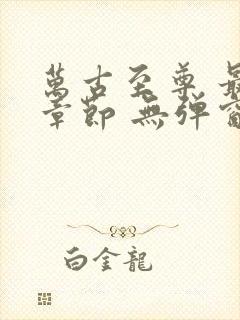 萬古至尊 最
章節 無彈窗
白金龍